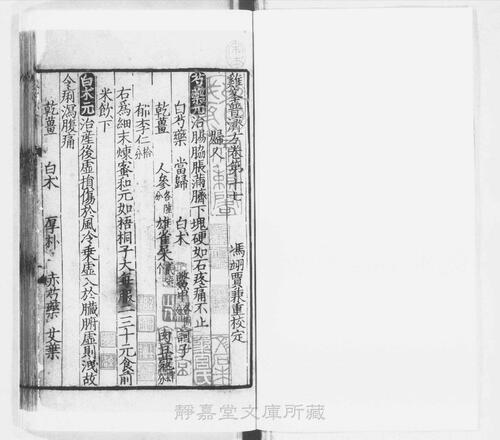 雞峯普濟方卷第十七
馮翊賈兼重校定
婦人
芍藥元治腸脇脹滿臍下塊硬如石疼痛不止
白芍藥 當歸 白朮 鱉甲 訶子
乾薑 人參 雄雀糞 肉蓯蓉
郁李仁
右爲細末煉蜜和元如梧桐子大每服二三十元食前
米飲下
白朮元治産後虛損傷於風冷乘虛入於臟腑虛則洩故
令痢瀉腹痛
乾薑 白朮 厚朴 赤芍藥 艾葉
靜嘉堂文庫所藏